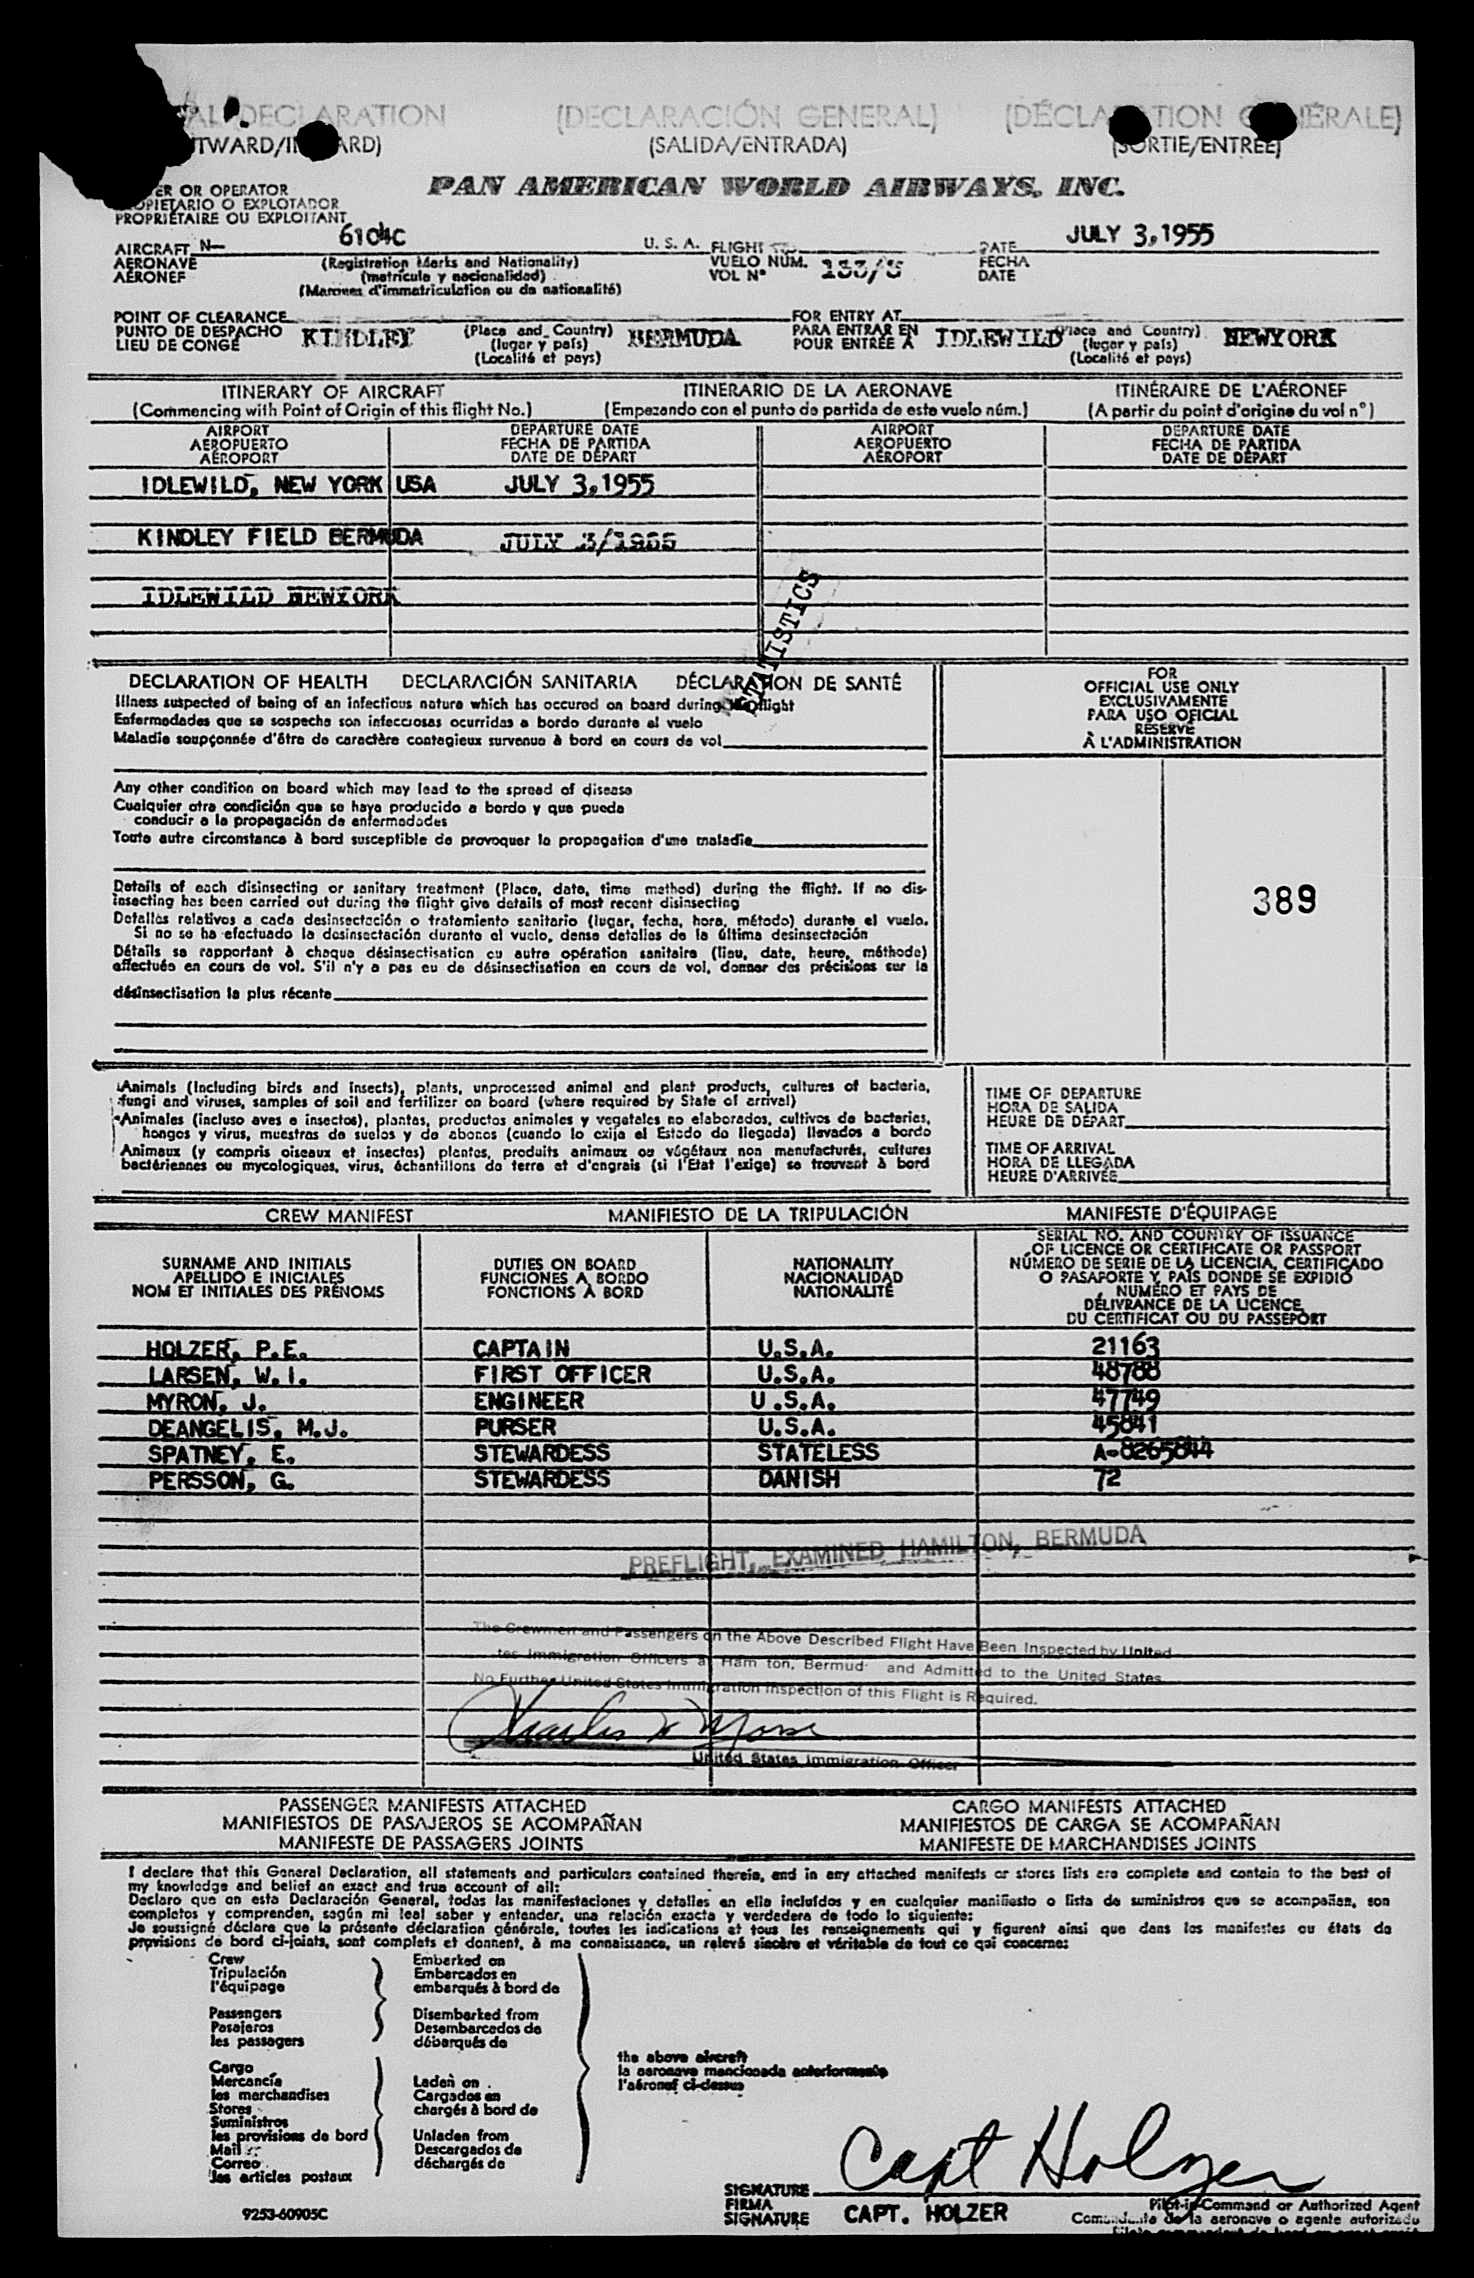 AL DECLARATION (DECLARACIÓN GENERAL) (DÉCLARATION GÉNÉRALE)
TWARD/INWARD) (SALIDA/ENTRADA) (SORTIE/ENTREE)
ER OR OPERATOR PAN AMERICAN WORLD AIRWAYS, INC.
OPIETARIO O EXPLOTADOR
PROPRIÉTAIRE OU EXPLOITANT
AIRCRAFT N- 6104C U. S. A. FLIGHT DATE JULY 3,1955
AERONAVE (Registration Marks and Nationality) VUELO NÚM. 133/3 FECHA
AÉRONEF (matrícula y nacionalidad) VOL N° DATE
(Marques d'immatriculation ou de nationalité)
POINT OF CLEARANCE FOR ENTRY AT
PUNTO DE DESPACHO KINDLEY (Place and Country) BERMUDA PARA ENTRAR EN IDLEWILD (Place and Country) NEWYORK
LIEU DE CONGÉ (lugar y país) POUR ENTRÉE A (lugar y país)
(Localité et pays) (Localité et pays)
ITINERARY OF AIRCRAFT ITINERARIO DE LA AERONAVE ITINÉRAIRE DE L'AÉRONEF
(Commencing with Point of Origin of this flight No.) (Empezando con el punto de partida de este vuelo núm.) (A partir du point d'origine du vol n°)
AIRPORT DEPARTURE DATE AIRPORT DEPARTURE DATE
AEROPUERTO FECHA DE PARTIDA AEROPUERTO FECHA DE PARTIDA
AÉROPORT DATE DE DÉPART AÉROPORT DATE DE DÉPART
IDLEWILD, NEW YORK USA JULY 3,1955
KINDLEY FIELD BERMUDA JULY 3/1955
IDLEWILD NEWYORK
STATISTICS
DECLARATION OF HEALTH DECLARACIÓN SANITARIA DÉCLARATION DE SANTÉ
Illness suspected of being of an infectious nature which has occured on board during the flight
Enfermedades que se sospecha son infecciosas ocurridas a bordo durante el vuelo
Maladie soupçonnée d'être de caractère contagieux survenue à bord en cours de vol
FOR
OFFICIAL USE ONLY
EXCLUSIVAMENTE
PARA USO OFICIAL
RÉSERVÉ
À L'ADMINISTRATION
Any other condition on board which may lead to the spread of disease
Cualquier otra condición que se haya producido a bordo y que pueda
conducir a la propagación de enfermedades
Toute autre circonstance à bord susceptible de provoquer la propagation d'une maladie
Details of each disinsecting or sanitary treatment (Place, date, time method) during the flight. If no dis-
insecting has been carried out during the flight give details of most recent disinsecting
Detalles relativos a cada desinsectación o tratamiento sanitario (lugar, fecha, hora, método) durante el vuelo.
Si no se ha efectuado la desinsectación durante el vuelo, dense detalles de la última desinsectación
Détails se rapportant à chaque désinsectisation ou autre opération sanitaire (lieu, date, heure, méthode)
effectuée en cours de vol. S'il n'y a pas eu de désinsectisation en cours de vol, donner des précisions sur la
désinsectisation la plus récente
389
Animals (Including birds and insects), plants, unprocessed animal and plant products, cultures of bacteria,
fungi and viruses, samples of soil and fertilizer on board (where required by State of arrival)
Animales (incluso aves e insectos), plantas, productos animales y vegetales no elaborados, cultivos de bacterias,
hongos y virus, muestras de suelos y de abonos (cuando lo exija el Estado de llegada) llevados a bordo
Animaux (y compris oiseaux et insectes) plantes, produits animaux ou végétaux non manufacturés, cultures
bactériennes ou mycologiques, virus, échantillons de terre et d'engrais (si l'Etat l'exige) se trouvant à bord
TIME OF DEPARTURE
HORA DE SALIDA
HEURE DE DÉPART
TIME OF ARRIVAL
HORA DE LLEGADA
HEURE D'ARRIVÉE
CREW MANIFEST MANIFIESTO DE LA TRIPULACIÓN MANIFESTE D'ÉQUIPAGE
SURNAME AND INITIALS DUTIES ON BOARD NATIONALITY
APELLIDO E INICIALES FUNCIONES A BORDO NACIONALIDAD
NOM ET INITIALES DES PRÉNOMS FONCTIONS À BORD NATIONALITÉ
SERIAL NO. AND COUNTRY OF ISSUANCE
OF LICENCE OR CERTIFICATE OR PASSPORT
NÚMERO DE SERIE DE LA LICENCIA, CERTIFICADO
O PASAPORTE Y PAÍS DONDE SE EXPIDIÓ
NUMÉRO ET PAYS DE
DÉLIVRANCE DE LA LICENCE
DU CERTIFICAT OU DU PASSEPORT
HOLZER, P.E. CAPTAIN U.S.A. 21163
LARSEN, W.I. FIRST OFFICER U.S.A. 48788
MYRON, J. ENGINEER U.S.A. 47749
DEANGELIS, M.J. PURSER U.S.A. 45841
SPATNEY, E. STEWARDESS STATELESS A-8265844
PERSSON, G. STEWARDESS DANISH 72
PREFLIGHT, EXAMINED HAMILTON, BERMUDA
The Crewmen and Passengers on the Above Described Flight Have Been Inspected by United
tes Immigration Officers a Ham ton, Bermud and Admitted to the United States
No Further United States Immigration Inspection of this Flight is Required.
Charles W Morse
United States Immigration Officer
PASSENGER MANIFESTS ATTACHED CARGO MANIFESTS ATTACHED
MANIFIESTOS DE PASAJEROS SE ACOMPAÑAN MANIFIESTOS DE CARGA SE ACOMPAÑAN
MANIFESTE DE PASSAGERS JOINTS MANIFESTE DE MARCHANDISES JOINTS
I declare that this General Declaration, all statements and particulars contained therein, and in any attached manifests or stores lists are complete and contain to the best of
my knowledge and belief an exact and true account of all:
Declaro que en esta Declaración General, todas las manifestaciones y detalles en ella incluídos y en cualquier manifiesto o lista de suministros que se acompañan, son
completos y comprenden, según mi leal saber y entender, una relación exacta y verdedera de todo lo siguiente:
Je soussigné déclare que la présente déclaration générale, toutes les indications et tous les renseignements qui y figurent ainsi que dans les manifestes ou états de
provisions de bord ci-joints, sont complets et donnent, à ma connaissance, un relevé sincère et véritable de tout ce qui concerne:
Crew Embarked on
Tripulación Embarcados en
l'équipage embarqués à bord de
Passengers Disembarked from
Pasajeros Desembarcados de
les passagers débarqués de
the above aircraft
la aeronave mencionada anteriormente
l'aéronef ci-dessus
Cargo
Mercancía Laden on
les marchandises Cargados en
Stores chargés à bord de
Suministros
les provisions de bord Unladen from
Mail Descargados de
Correo déchargés de
les articles postaux
Capt Holzer
SIGNATURE
FIRMA CAPT. HOLZER Pilot-in-Command or Authorized Agent
SIGNATURE Comandante de la aeronave o agente autorizado
9253-60905C